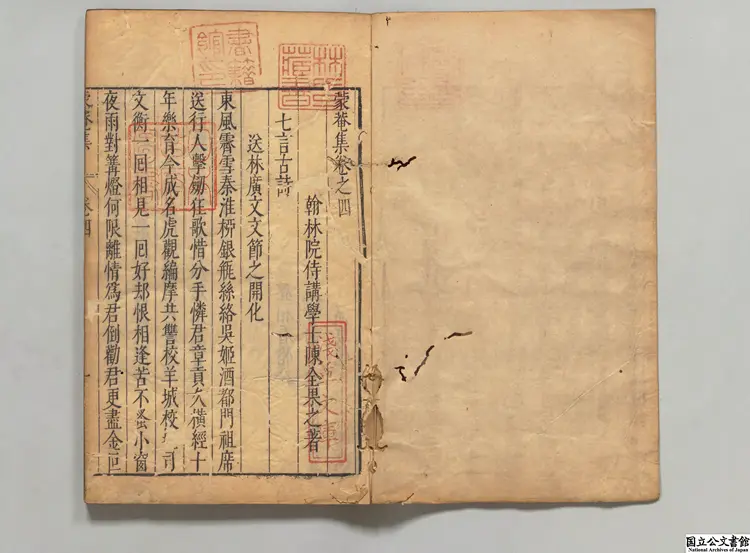 蒙菴集卷之四
翰林院侍講學士陳全果之著
七言古詩
送林廣文文節之開化
東風霽雪秦淮栁銀缾絲絡吳姬酒都門祖席
送行人擊劒狂歌惜分手憐君章貢久橫經十
年樂育今成名虎觀編摩共讐校羊城校司
文衡一囘相見一囘好却恨相逢苦不蚤小窗
夜雨對篝燈何限離情爲君倒勸君更盡金叵
蒙菴集 卷四 一
書籍館印
淺草文庫
国立公文書館
National Archives of Japan